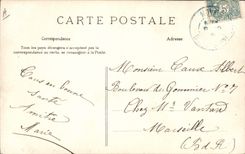 CARTE POSTALE
Correspondance
Adresse
Tous les pays étrangers n'acceptent pas la
Correspondance au recto, se renseigner à la Poste
Monsieur Caux Albert
Boulevard de Gouvernier N° 27
Chez Mr
Marseille
(B d R)
Caux en bonne
santé
Amitié
Marie